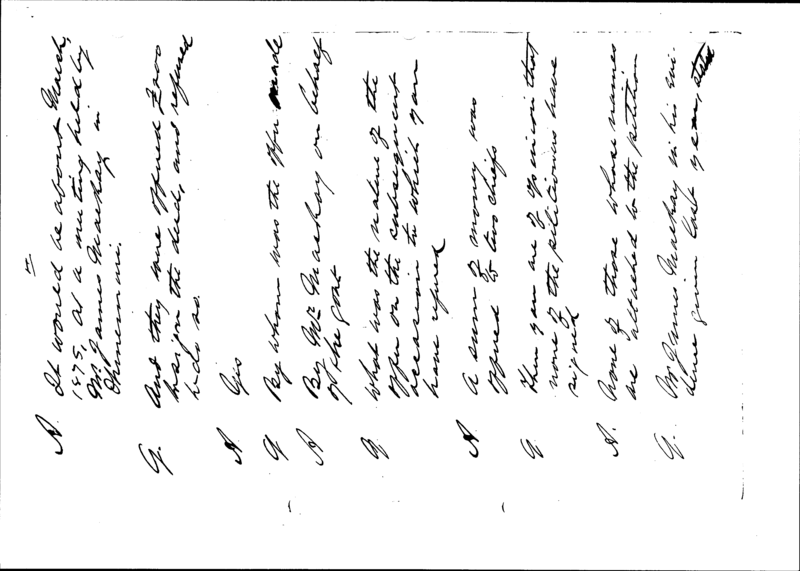 11
A. It would be about March,
1875, at a meeting held by
Mr. James Mackay in
Q. And they were offered £200
to sign the deed, and refused
to do so
A Yes
Q By whom was the offer made
A By Mr Mackay on behalf
of the Govt
Q What was the nature of the
offer on the subsequent
occasion to which you
have referred
A A sum of money was
offered to two chiefs
Q Then you are of opinion that
none of the petitioners have
signed
A. None of those whose names
are attached to the petition
Q. Mr James Mackay in his evi-
dence given last year,